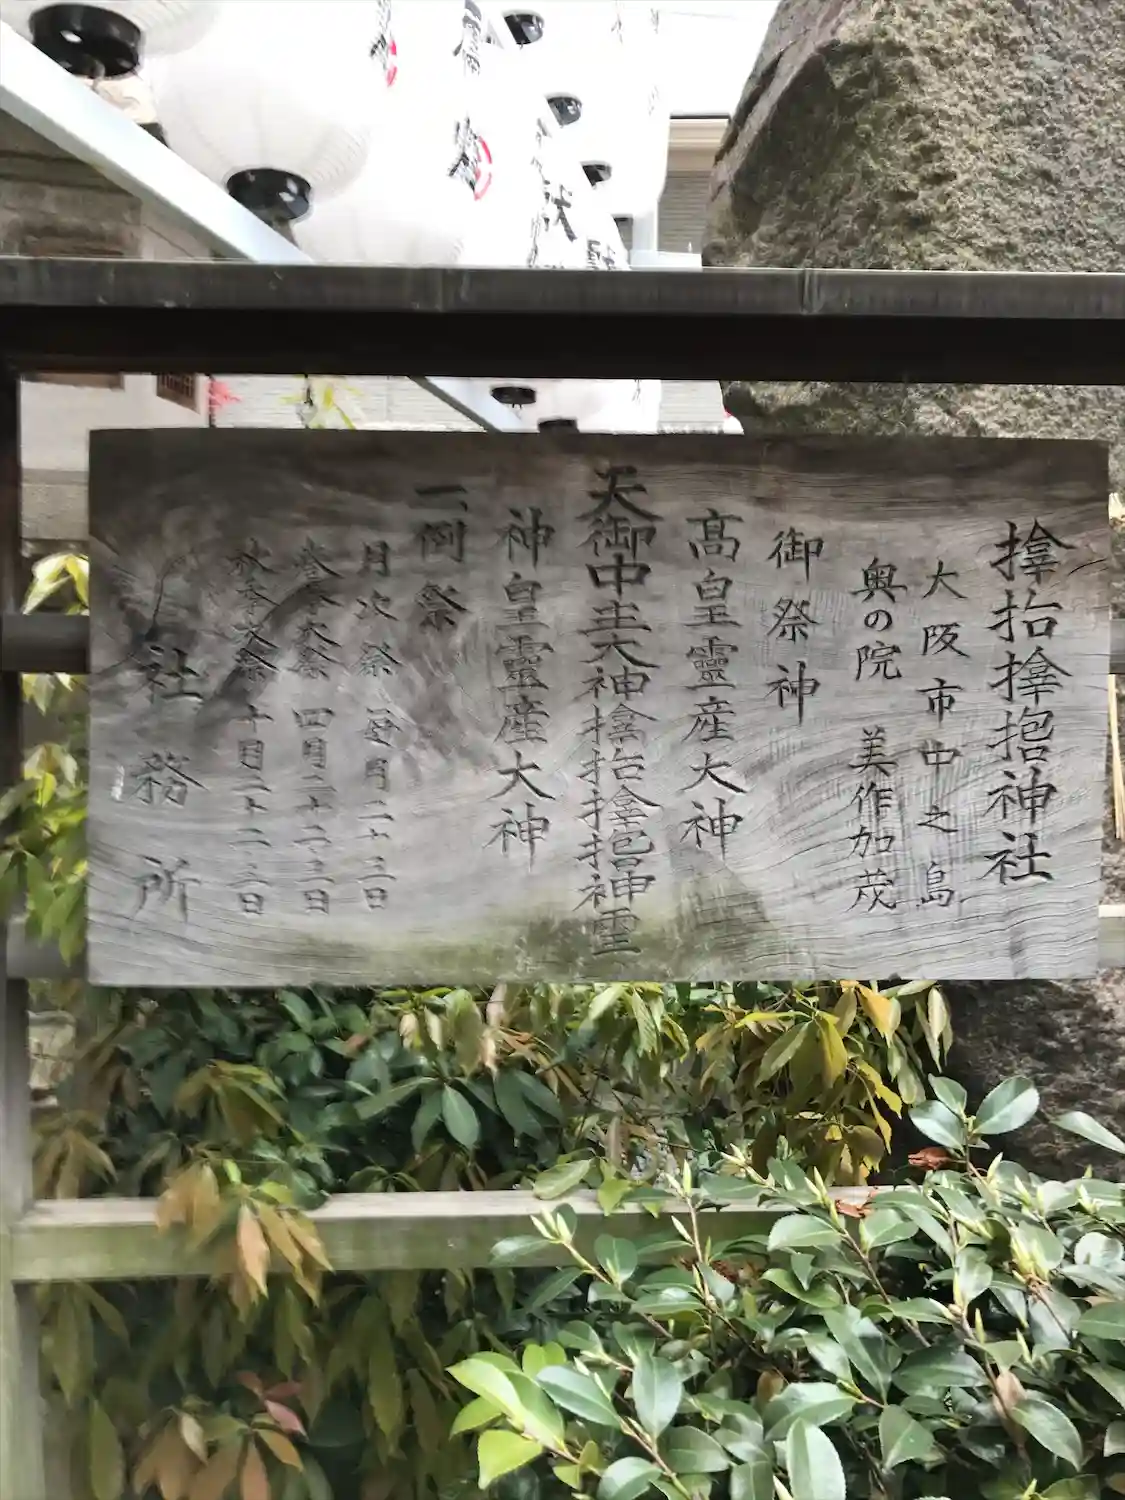 神社
大阪市中之島
奥の院 美作加茂
御祭神
高皇靈産大神
天御中主大神 神霊
神皇靈産大神
一、例祭
月次祭 毎月二十三日
春季大祭 四月二十二、三日
秋季大祭 十月二十二、三日
社務所